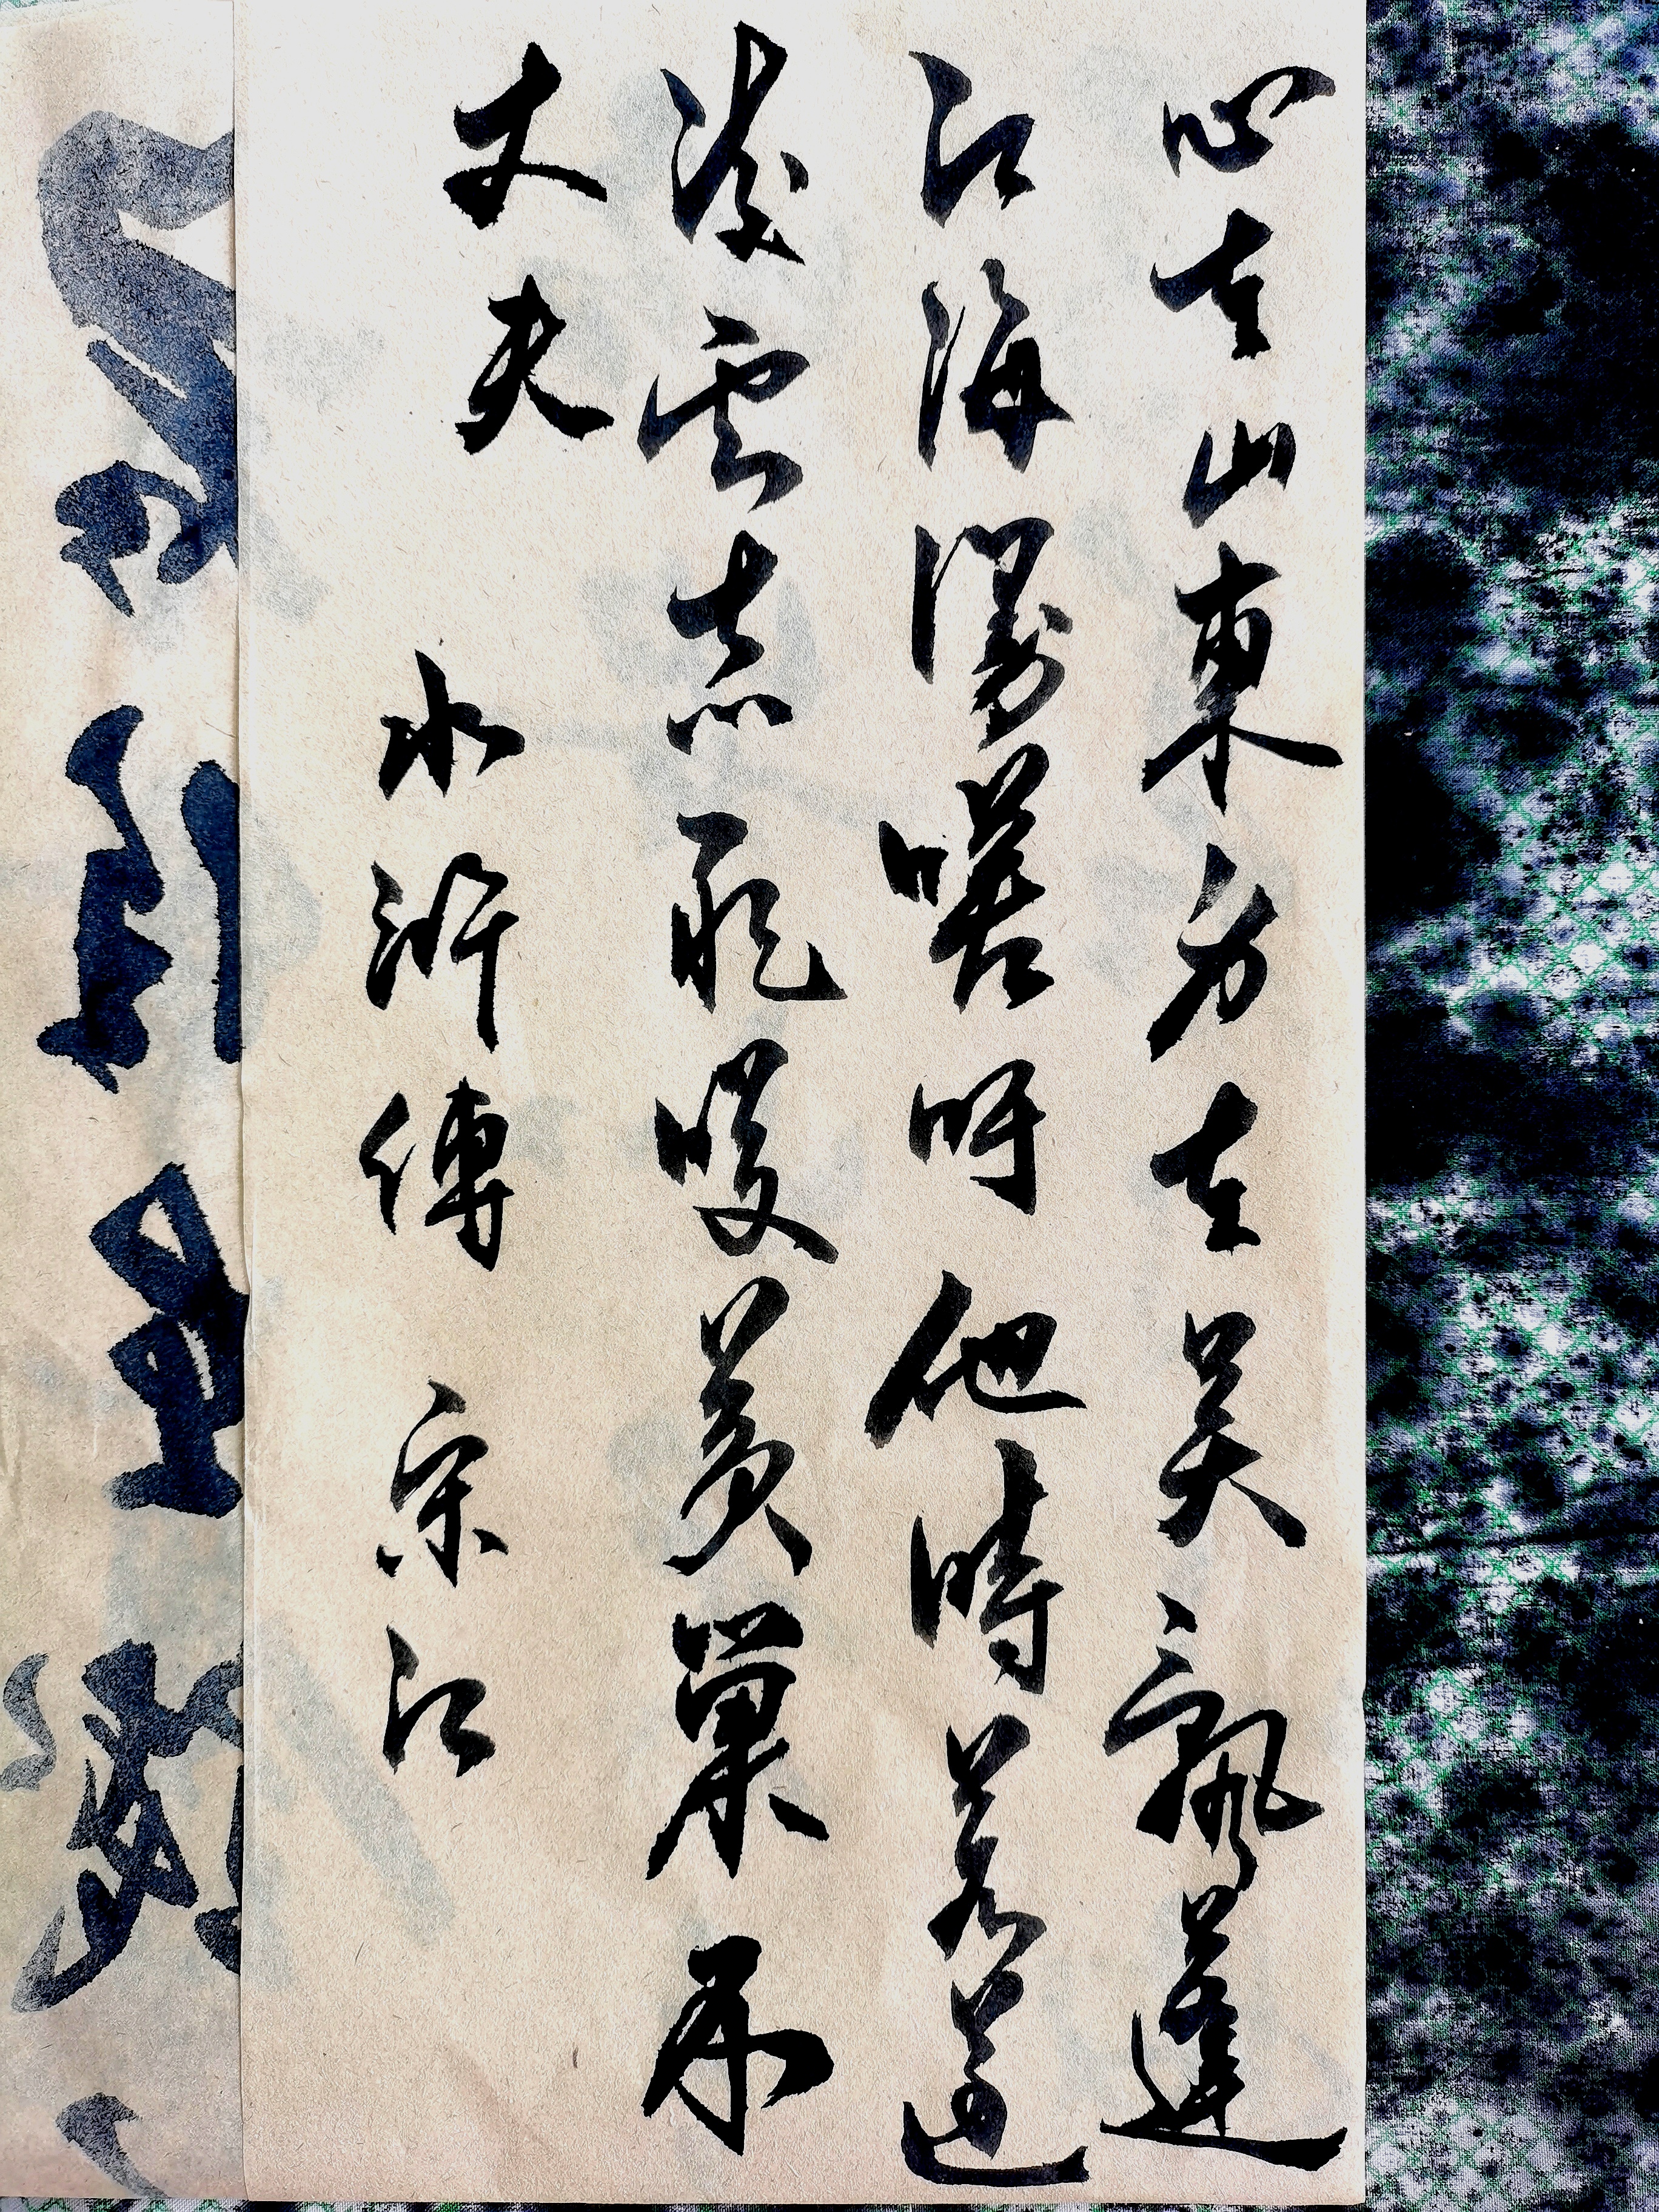 心在山東身在吴飄蓬
江海漫嗟吁他時若遂
凌雲志敢笑黄巢不
丈夫
水滸傳 宋江